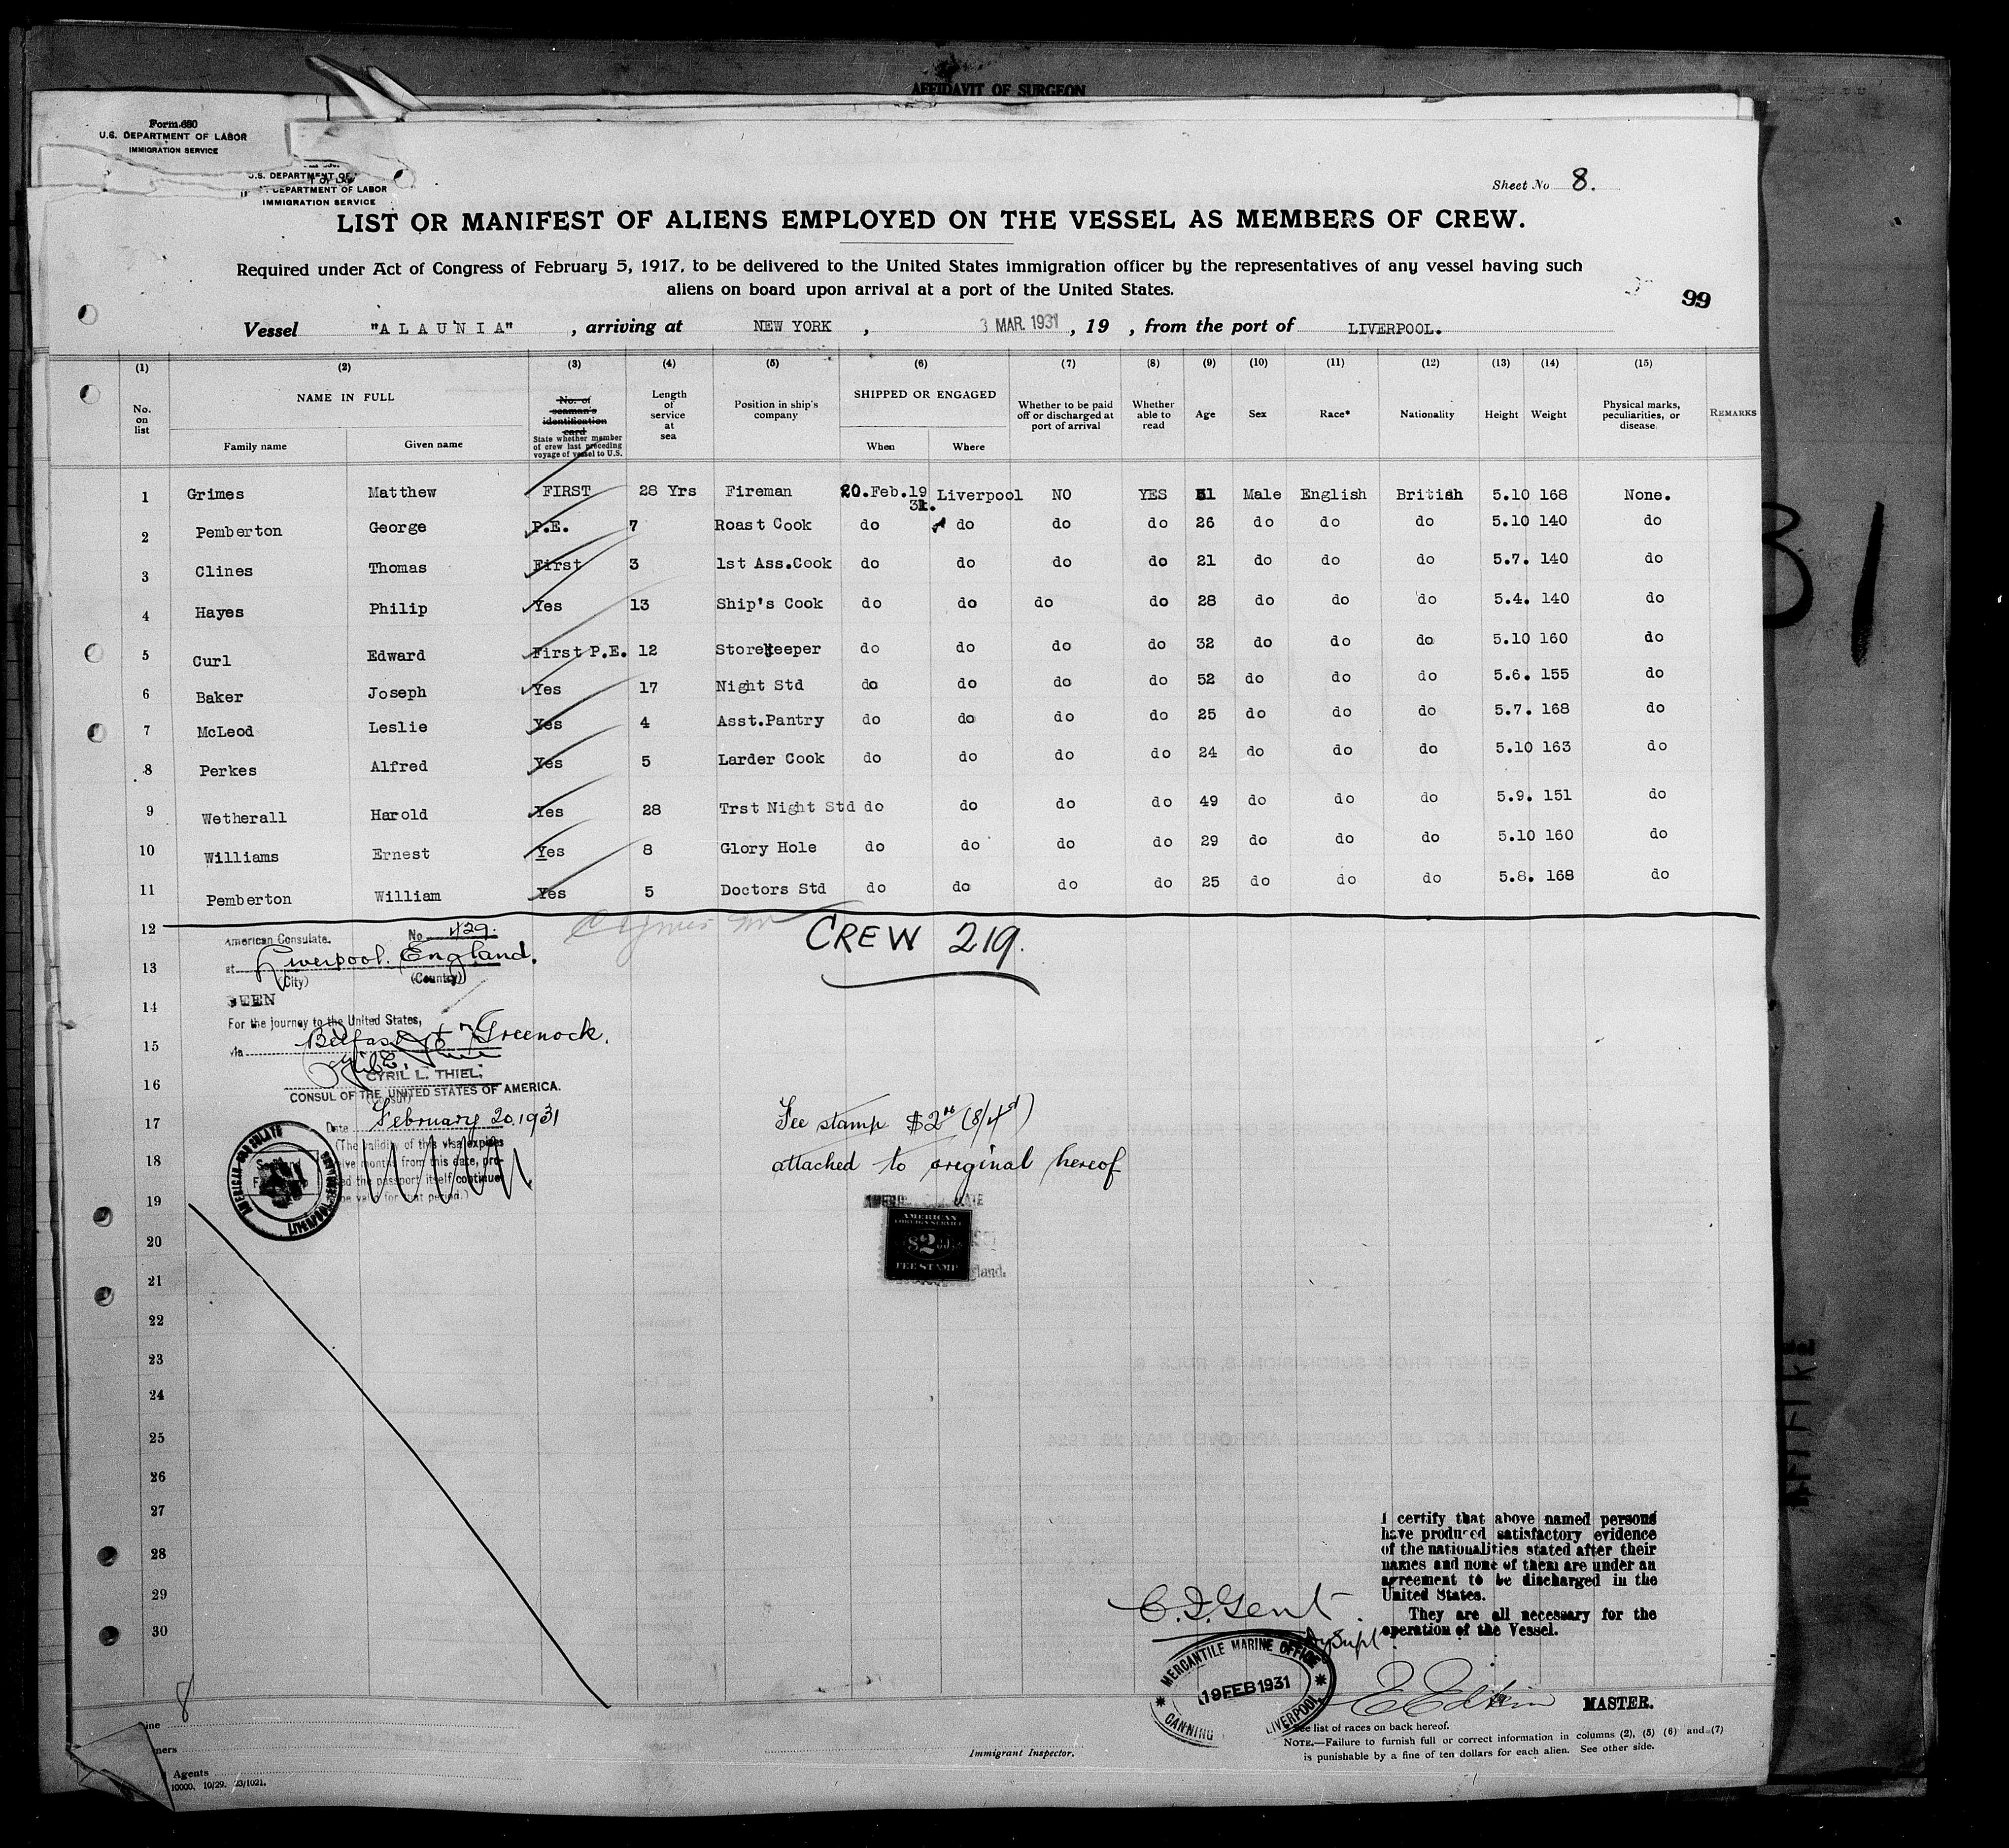 AFFIDAVIT OF SURGEON
Form 680
U.S. DEPARTMENT OF LABOR
IMMIGRATION SERVICE
U.S. DEPARTMENT OF
DEPARTMENT OF LABOR
IMMIGRATION SERVICE
Sheet No 8.
LIST OR MANIFEST OF ALIENS EMPLOYED ON THE VESSEL AS MEMBERS OF CREW.
Required under Act of Congress of February 5, 1917, to be delivered to the United States immigration officer by the representatives of any vessel having such
aliens on board upon arrival at a port of the United States.
99
Vessel "ALAUNIA", arriving at NEW YORK, 3 MAR. 1931, 19 , from the port of LIVERPOOL.
(1) (2) (3) (4) (5) (6) (7) (8) (9) (10) (11) (12) (13) (14) (15)
No. on list NAME IN FULL Family name Given name No. of seaman's identification card State whether member of crew last preceding voyage of vessel to U.S. Length of service at sea Position in ship's company SHIPPED OR ENGAGED When Where Whether to be paid off or discharged at port of arrival Whether able to read Age Sex Race* Nationality Height Weight Physical marks, peculiarities, or disease REMARKS
1 Grimes Matthew FIRST 28 Yrs Fireman 20.Feb.1931. Liverpool NO YES 51 Male English British 5.10 168 None.
2 Pemberton George P.E. 7 Roast Cook do do do do 26 do do do 5.10 140 do
3 Clines Thomas First 3 1st Ass.Cook do do do do 21 do do do 5.7. 140 do
4 Hayes Philip Yes 13 Ship's Cook do do do do 28 do do do 5.4. 140 do
5 Curl Edward First P.E. 12 Storekeeper do do do do 32 do do do 5.10 160 do
6 Baker Joseph Yes 17 Night Std do do do do 52 do do do 5.6. 155 do
7 McLeod Leslie Yes 4 Asst.Pantry do do do do 25 do do do 5.7. 168 do
8 Perkes Alfred Yes 5 Larder Cook do do do do 24 do do do 5.10 163 do
9 Wetherall Harold Yes 28 Trst Night Std do do do do 49 do do do 5.9. 151 do
10 Williams Ernest Yes 8 Glory Hole do do do do 29 do do do 5.10 160 do
11 Pemberton William Yes 5 Doctors Std do do do do 25 do do do 5.8. 168 do
12
American Consulate. No 429.
CREW 219.
13
at Liverpool. England.
(City) (Country)
14
SEEN
For the journey to the United States,
15
via Belfast & Greenock.
16
CYRIL L. THIEL.
CONSUL OF THE UNITED STATES OF AMERICA.
(Consul)
17
Date February 20, 1931
Fee stamp $2.00 (8/4d)
18
(The validity of this visa expires
twelve months from this date, pro-
ed the passport itself continue
be valid for that period.)
AMERICAN CONSULATE
attached to original hereof
19
AMERICAN
FOREIGN SERVICE
$2.00
FEE STAMP
20
21
22
23
24
25
26
27
28
29
30
I certify that above named persons
have produced satisfactory evidence
of the nationalities stated after their
names and none of them are under an
agreement to be discharged in the
United States.
They are all necessary for the
operation of the Vessel.
Dy Supt.
MERCANTILE MARINE OFFICE
19 FEB 1931
CANNING LIVERPOOL
MASTER.
8
Agents
10000, 10/29, 23/1021.
Immigrant Inspector.
See list of races on back hereof.
NOTE.—Failure to furnish full or correct information in columns (2), (5) (6) and (7)
is punishable by a fine of ten dollars for each alien. See other side.
31